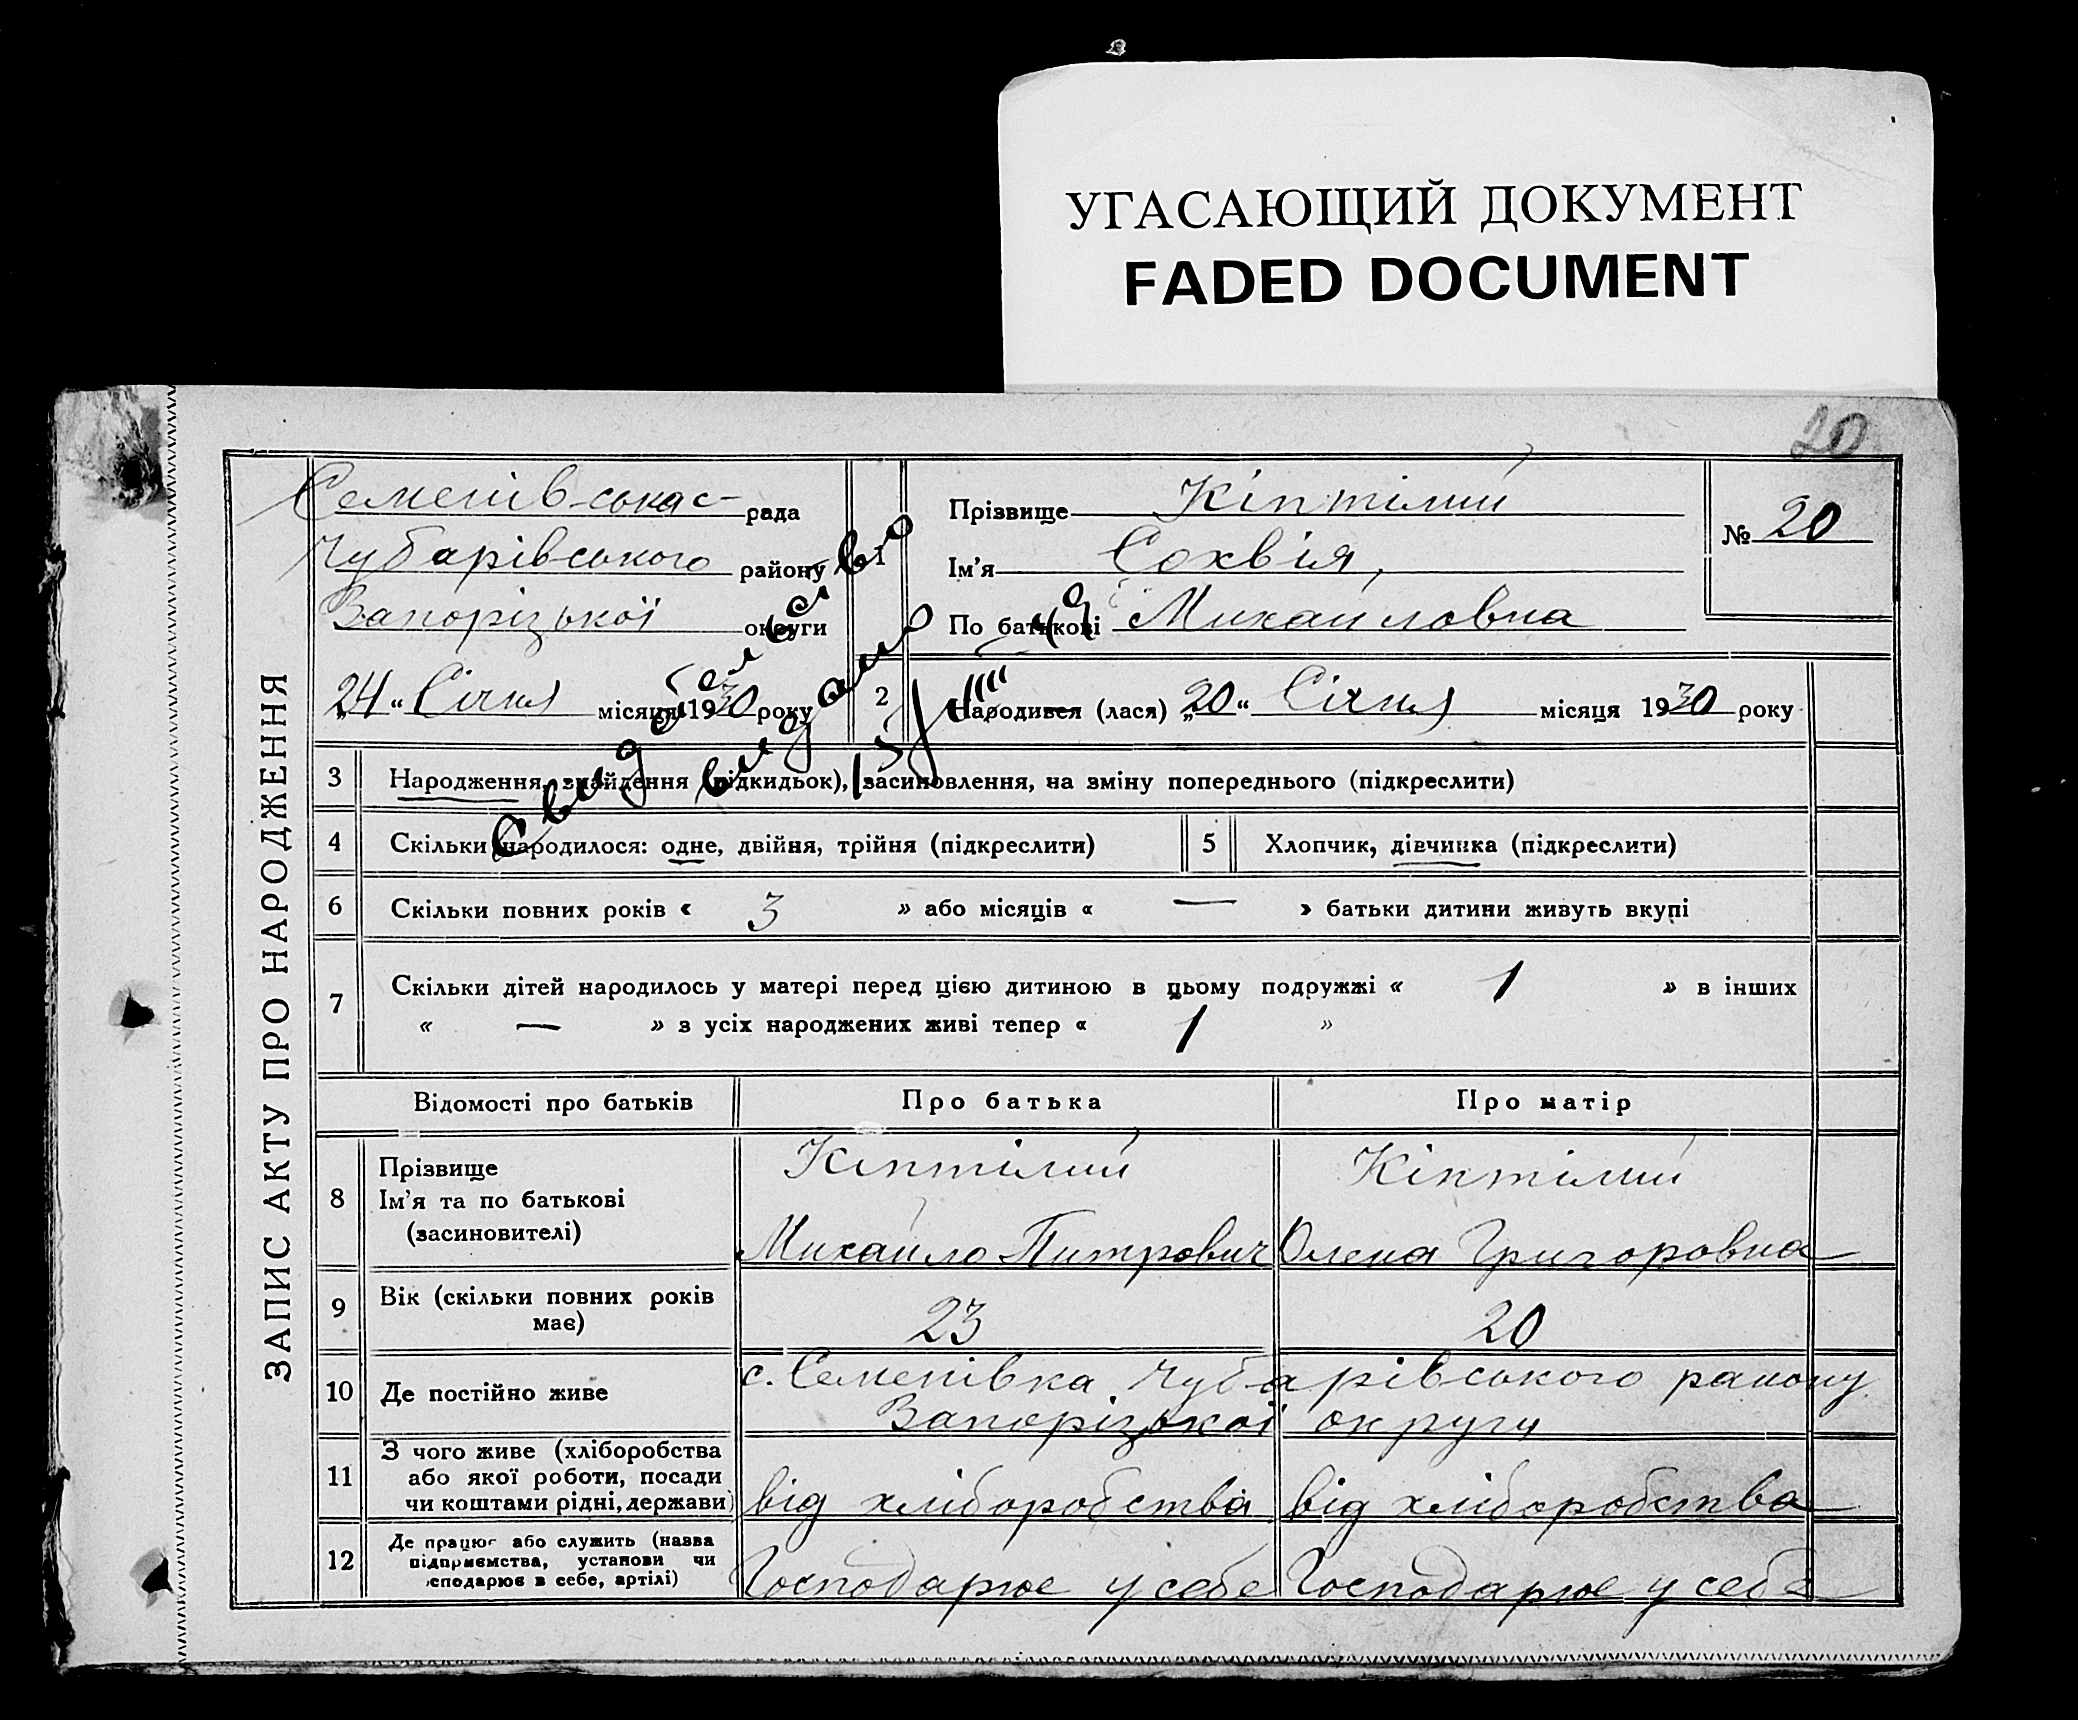 УГАСАЮЩИЙ ДОКУМЕНТ
FADED DOCUMENT
20
ЗАПИС АКТУ ПРО НАРОДЖЕННЯ
Семенівська с- рада
Чубарівського району
Запорізької округи
„24“ Січня місяця 1930 року
1
Прізвище Кіптілий
Ім'я Сохвія,
По батькові Михайловна
№ 20
2 Народився (лася) „20“ Січня місяця 1930 року
Свидетельство
видано
3 Народження, знайдення (підкидьок), засиновлення, на зміну попереднього (підкреслити)
4 Скільки народилося: одне, двійня, трійня (підкреслити) 5 Хлопчик, дівчинка (підкреслити)
6 Скільки повних років « 3 » або місяців « — » батьки дитини живуть вкупі
7 Скільки дітей народилось у матері перед цією дитиною в цьому подружжі « 1 » в інших
« — » з усіх народжених живі тепер « 1 »
Відомості про батьків Про батька Про матір
8 Прізвище
Ім'я та по батькові
(засиновителі)
Кіптілий
Михайло Питрович
Кіптілий
Олена Григоровна
9 Вік (скільки повних років
має)
23 20
10 Де постійно живе
с. Семенівка Чубарівського району
Запорізької округи
11 З чого живе (хліборобства
або якої роботи, посади
чи коштами рідні, держави)
від хліборобства від хліборобства
12 Де працює або служить (назва
підприємства, установи чи
сподарює в себе, артілі)
Господарює у себе Господарює у себе